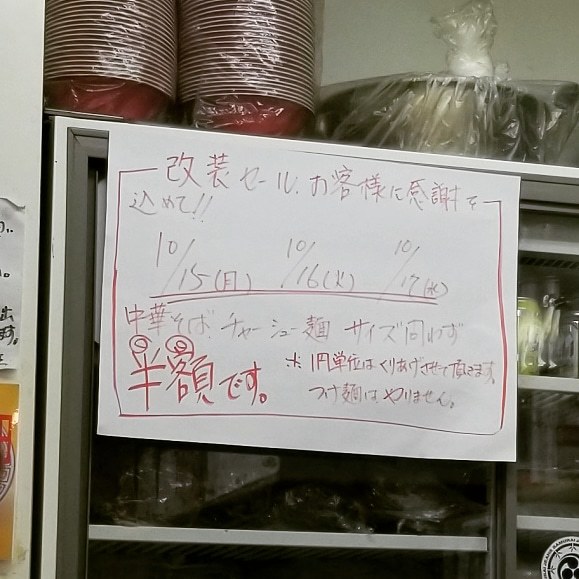 改装セール、お客様に感謝を
込めて!!
10/15(月) 10/16(火) 10/17(水)
中華そば チャーシュー麺 サイズ問わず
半額です。
※ 1円単位はくりあげさせて頂きます。
つけ麺は やりません。